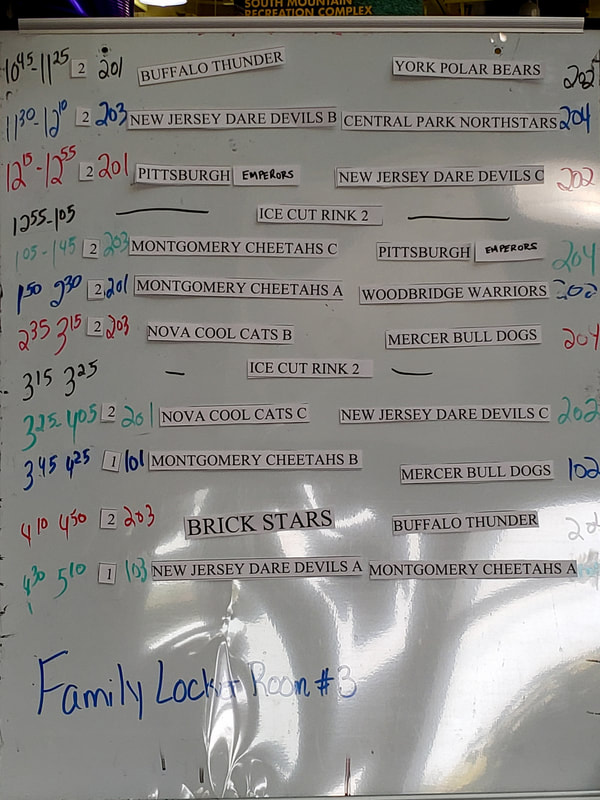 SOUTH MOUNTAIN
RECREATION COMPLEX
10 45-11 25 2 201 BUFFALO THUNDER YORK POLAR BEARS 202
11 30-12 10 2 203 NEW JERSEY DARE DEVILS B CENTRAL PARK NORTHSTARS 204
12 15-12 55 2 201 PITTSBURGH EMPERORS NEW JERSEY DARE DEVILS C 202
12 55-1 05 ICE CUT RINK 2
1 05-1 45 2 203 MONTGOMERY CHEETAHS C PITTSBURGH EMPERORS 204
1 50 2 30 2 201 MONTGOMERY CHEETAHS A WOODBRIDGE WARRIORS 202
2 35 3 15 2 203 NOVA COOL CATS B MERCER BULL DOGS 204
3 15 3 25 ICE CUT RINK 2
3 25-4 05 2 201 NOVA COOL CATS C NEW JERSEY DARE DEVILS C 202
3 45 4 25 1 101 MONTGOMERY CHEETAHS B MERCER BULL DOGS 102
4 10 4 50 2 203 BRICK STARS BUFFALO THUNDER
4 30 5 10 1 103 NEW JERSEY DARE DEVILS A MONTGOMERY CHEETAHS A
Family Locker Room #3